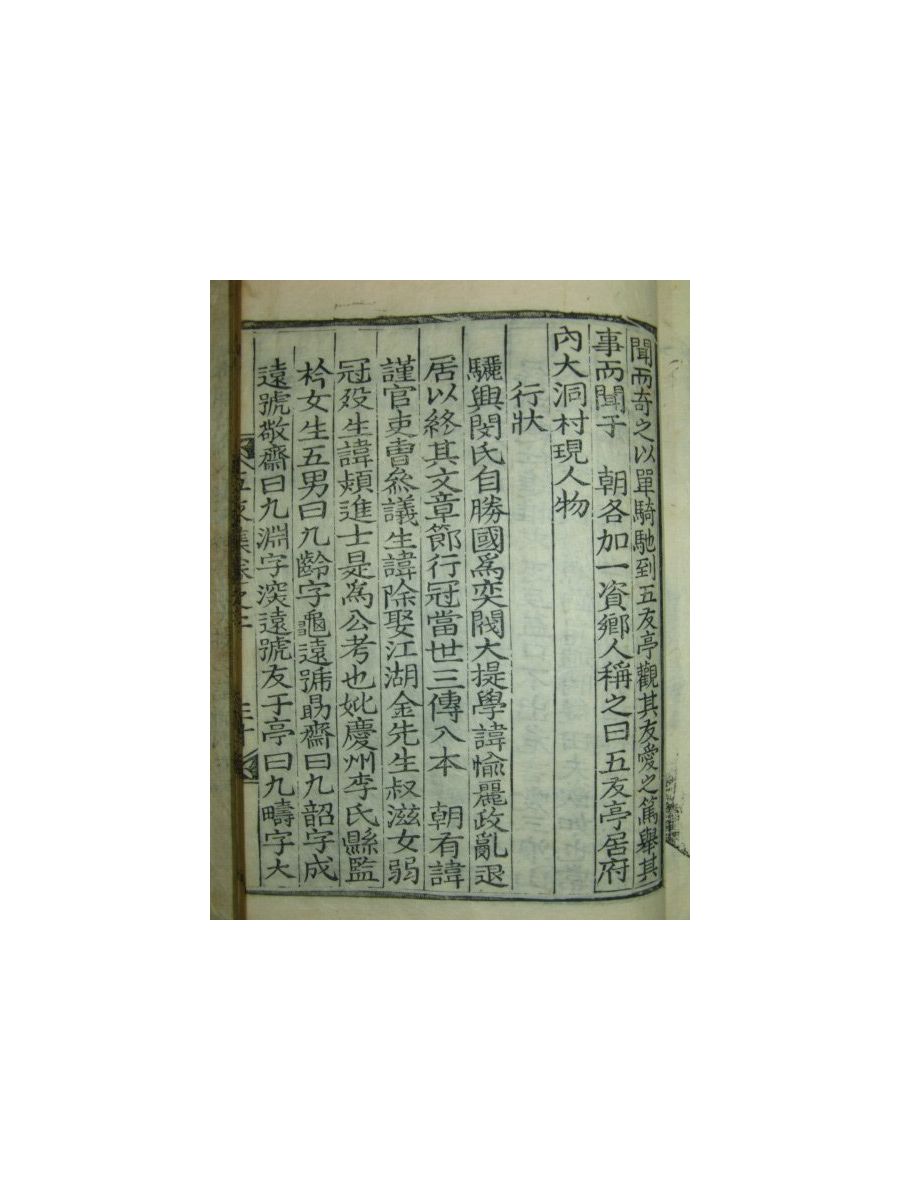 聞而奇之以單騎馳到五友亭觀其友愛之篤舉其
事而聞于 朝各加一資鄉人稱之曰五友亭居府
內大洞村現人物
行狀
驪興閔氏自勝國爲奕閥大提學諱愉麗政亂退
居以終其文章節行冠當世三傳入本 朝有諱
謹官吏曹參議生諱除娶江湖金先生叔滋女弱
冠歿生諱熲進士是爲公考也妣慶州李氏縣監
衿女生五男曰九齡字龜遠號勗齋曰九韶字成
遠號敬齋曰九淵字深遠號友于亭曰九疇字大
五友集卷之二